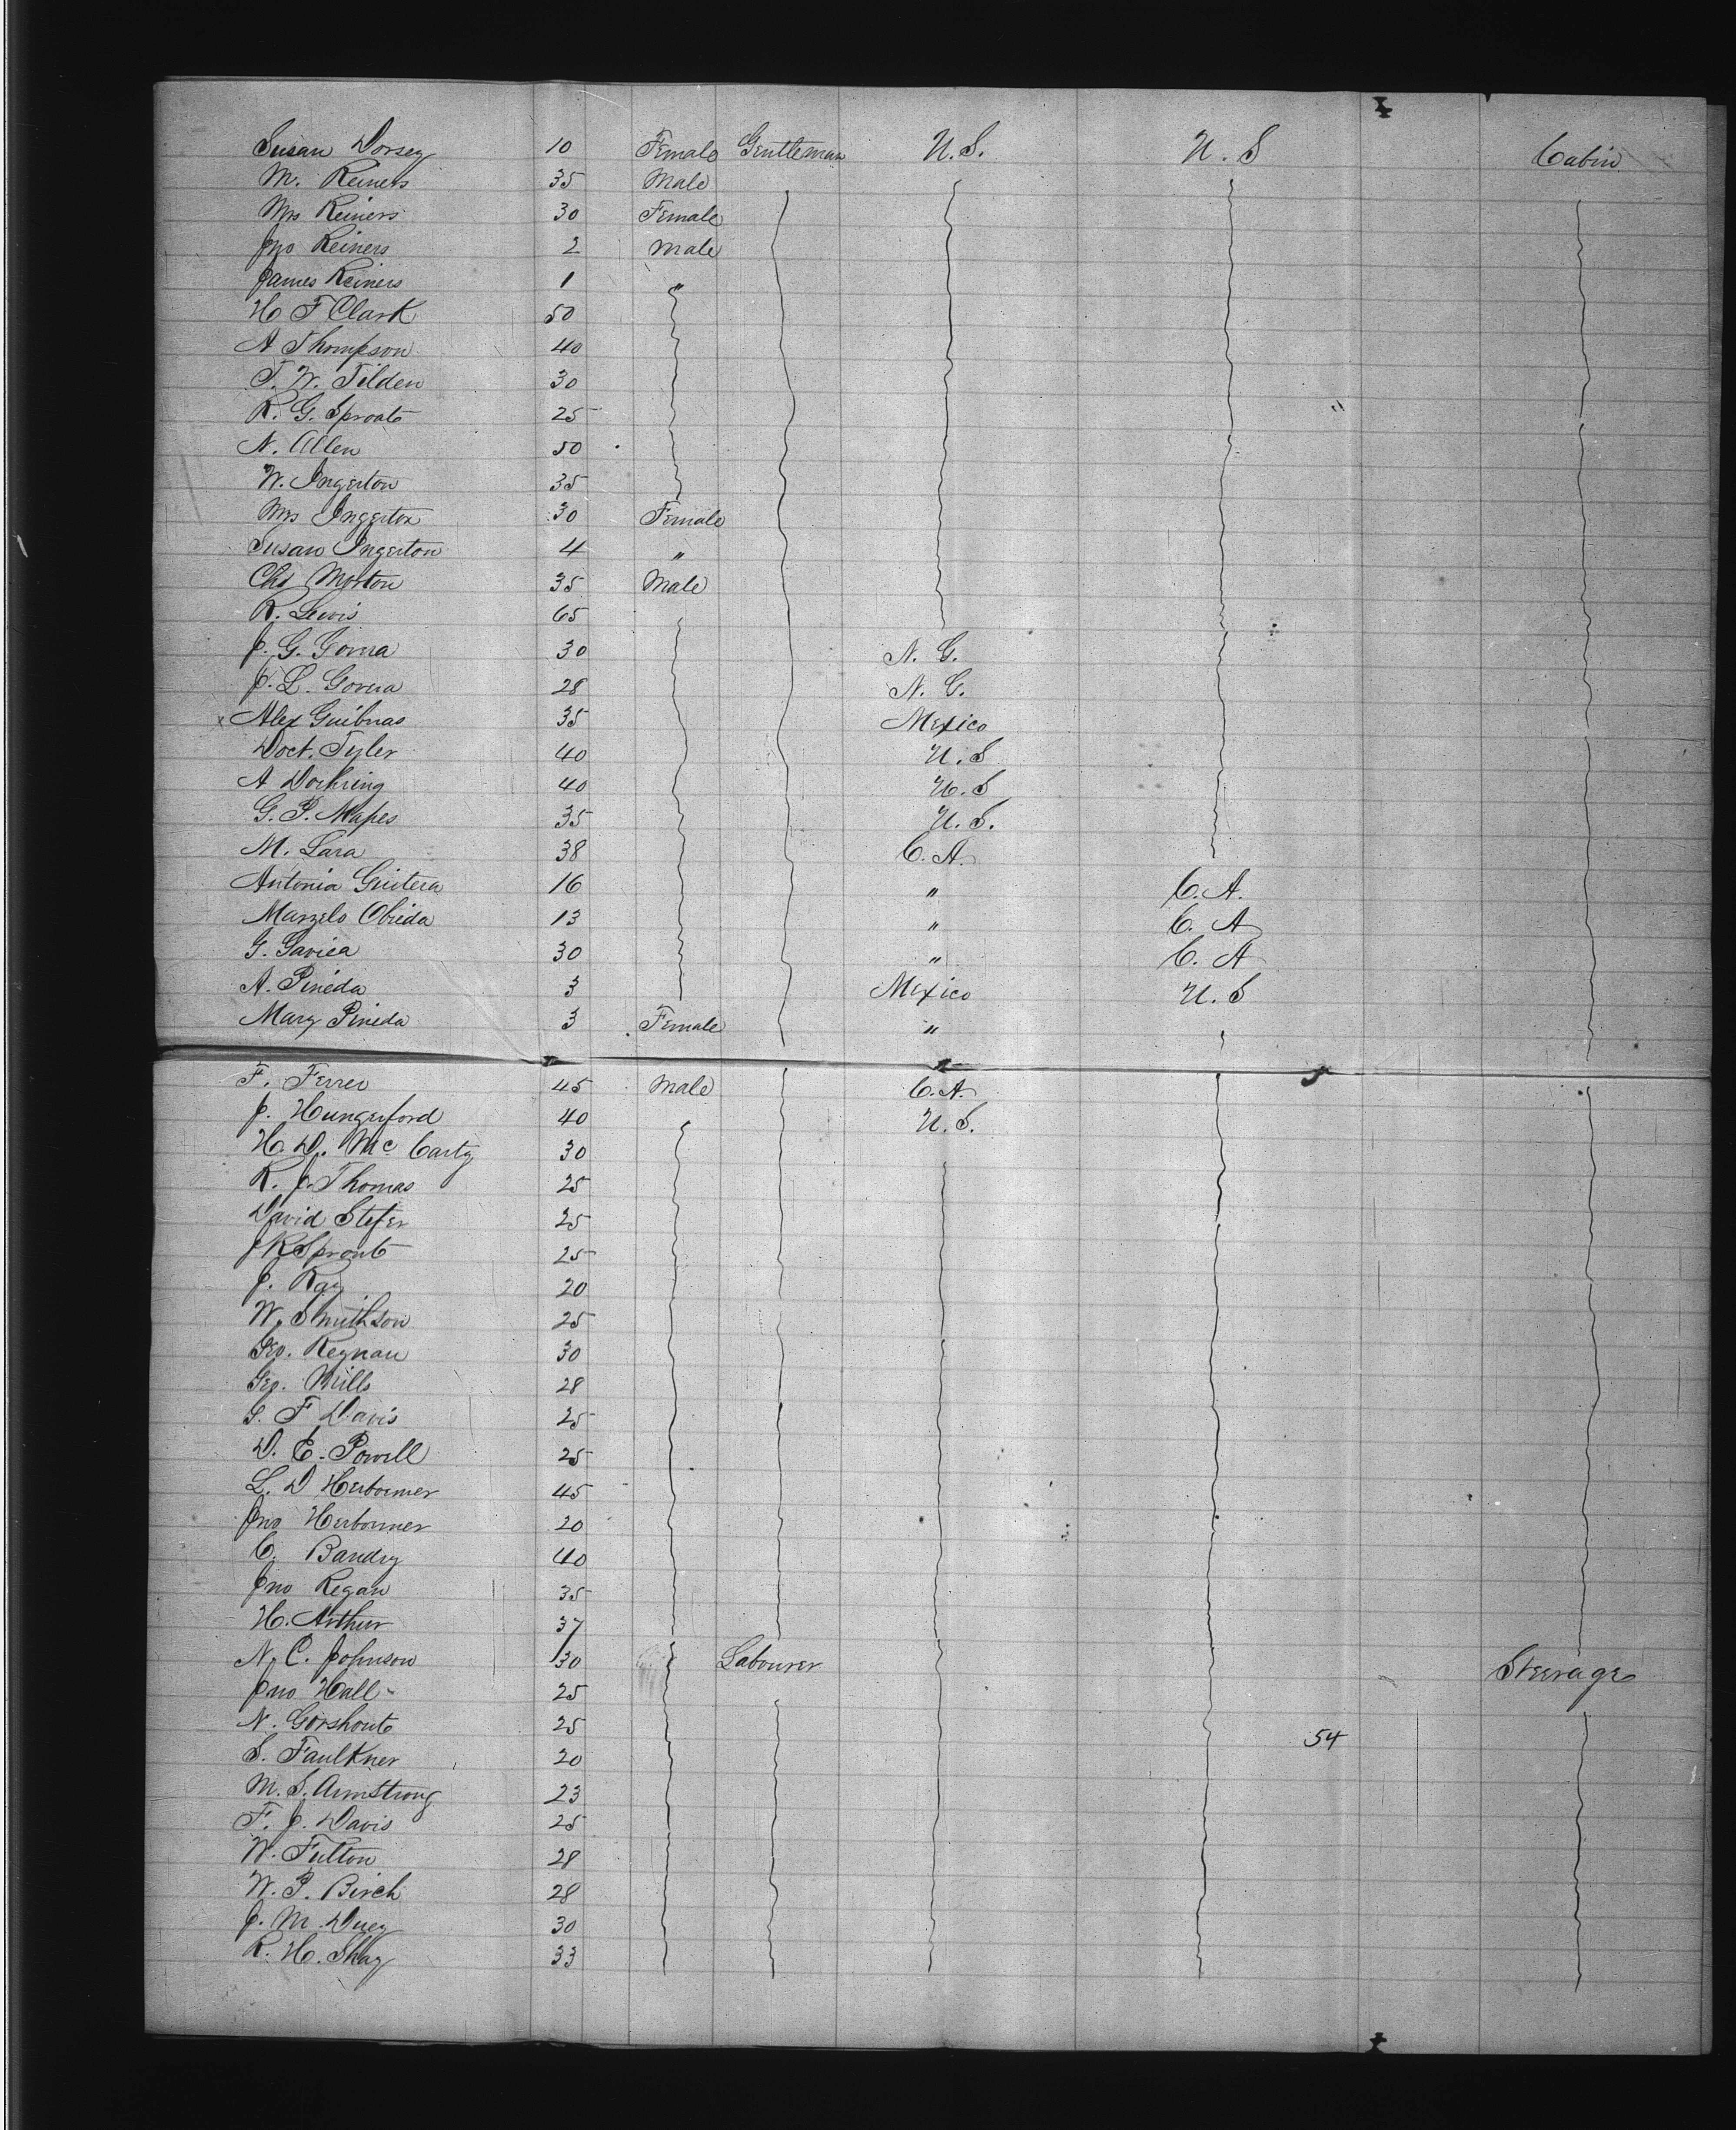 Susan Dorsey 10 Female Gentleman U.S. U.S Cabin
M. Reiners 35 Male
Mrs Reiners 30 Female
Jno Reiners 2 Male
James Reiners 1 "
H F Clark 50
A Thompson 40
T. W. Tilden 30
R. G. Sproats 25
N. Allen 50
W. Ingerton 35
Mrs Ingerton 30 Female
Susan Ingerton 4 "
Chs Morton 35 Male
R. Lewis 65
J. G. 30 N. G.
J. L. 28 N. G.
Alex 35 Mexico
Doct. Tyler 40 U.S
A 40 U.S
G. P. Mapes 35 U.S.
M. Lara 38 C.A.
Antonia Guitera 16 " C.A.
Marzelo Obieda 13 " C. A
G. Gavica 30 " C. A
A. Pineda 3 Mexico U.S
Mary Pineda 3 Female "
F. Ferrer 45 Male C.A.
J. Hungerford 40 U.S.
H. D. Mc Carty 30
R. J. Thomas 25
David 25
J K Sprout 25
J. Ray 20
W. Smithson 25
Geo. Regnau 30
Geo. Mills 28
G. F Davis 25
D. E. Powell 25
L. D 45
Jno 20
C. Bandry 40
Jno Regan 35
H. Arthur 37
N. C. Johnson 30 Labourer Steerage
Jno Hall 25
N. Gorshout 25 54
S. Faulkner 20
M. S. Armstrong 23
F. J. Davis 25
W. Fulton 28
W. P. Birch 28
J. M. Duey 30
R. H. Shay 33